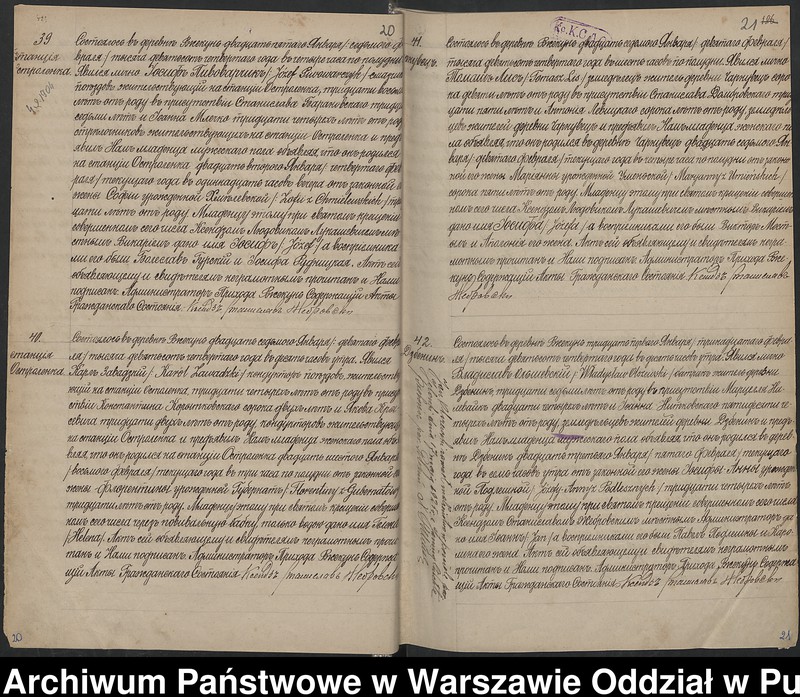 20
39
Станція
Остроленка.
4.2.1904
Состоялось въ деревнѣ Рзекунь двадцать пятаго Января / седьмого Фе-
враля / тысяча девятьсотъ четвертаго года въ четыре часа по полудни.
Явился лично Іосифъ Пивоварчикъ / Józef Piwowarczyk / смазчик
поѣздовъ жительствующій на станціи Остроленка, тридцати восьми
лѣтъ отъ роду въ присутствіи Станислава Барановскаго тридцати
седьми лѣтъ и Іоанна Млечко тридцати четырехъ лѣтъ отъ роду
стрѣлочниковъ жительствующихъ на станціи Остроленка и предъ-
явилъ Намъ младенца мужескаго пола объявляя, что онъ родился
на станціи Остроленка двадцать второго Января / четвертаго Фев-
раля / текущаго года въ одинадцать часовъ вечера отъ законной его
жены Софіи урожденной Хмѣлевской / Zofii z Chmielewskich / три-
дцати лѣтъ отъ роду. Младенцу этому при святомъ крещеніи
совершенномъ сего числа Ксендзомъ Людовикомъ Лукашевичемъ мѣ-
стнымъ Викаріемъ дано имя Іосифъ / Józef / а восприемника-
ми его были Болеславъ Гурскій и Іосифа Рудницкая. Актъ сей
объявляющему и свидѣтелямъ неграмотнымъ прочитанъ и Нами
подписанъ. Администраторъ Прихода Рзекунь Содержащій Акты
Гражданскаго Состоянія.
40.
станція
Остроленка.
Состоялось въ деревнѣ Рзекунь двадцать седьмого Января / девятаго Фев-
раля / тысяча девятьсотъ четвертаго года въ десять часовъ утра. Явился
Карлъ Завадзкій / Karol Zawadzki / кондукторъ поѣздовъ, жительству-
ющій на станціи Остроленка, тридцати четырехъ лѣтъ отъ роду въ присут-
ствіи Константина сорока двухъ лѣтъ и Якова
тридцати двухъ лѣтъ отъ роду, кондукторовъ жительствующихъ
на станціи Остроленка и предъявилъ Намъ младенца женскаго пола объя-
вляя, что онъ родился на станціи Остроленка двадцать шестого Января
/ восьмого Февраля / текущаго года въ три часа по полудни отъ законной его
жены Флорентины урожденной Губернатъ / Florentiny z Gubernatów /
тридцати лѣтъ отъ роду. Младенцу этому при святомъ крещеніи соверш-
номъ сего числа черезъ повивальную бабку, только водою дано имя Елена
/ Helena /. Актъ сей объявляющему и свидѣтелямъ неграмотнымъ прочи-
танъ и Нами подписанъ. Администраторъ Прихода Рзекунь Содержа-
щій Акты Гражданскаго Состоянія.
20
21
41.
Состоялось въ деревнѣ Рзекунь двадцать седьмого Января / девятаго Февраля /
тысяча девятьсотъ четвертаго года въ шесть часовъ по полудни. Явился лично
Томашъ Лисъ / Tomasz Lis / земледѣлецъ житель деревни Чарновецъ соро-
ка девяти лѣтъ отъ роду въ присутствіи Станислава Домбровскаго тридца-
ти пяти лѣтъ и Антонія Левицкаго сорока лѣтъ отъ роду, земледѣль-
цевъ жителей деревни Чарновецъ и предъявилъ Намъ младенца женскаго по-
ла объявляя, что онъ родился въ деревнѣ Чарновецъ двадцать седьмого Ян-
варя / девятаго Февраля / текущаго года въ четыре часа по полудни отъ закон-
ной его жены Марьянны урожденной
сорока пяти лѣтъ отъ роду. Младенцу этому при святомъ крещеніи соверш-
номъ сего числа Ксендзомъ Людовикомъ Лукашевичемъ мѣстнымъ Викаріемъ
дано имя Іосифа / Józefa / а восприемниками его были Викторъ
и Аполонія его жена. Актъ сей объявляющему и свидѣтелямъ негра-
мотнымъ прочитанъ и Нами подписанъ. Администраторъ Прихода Рзе-
кунь Содержащій Акты Гражданскаго Состоянія.
42.
Дрвенинъ.
Состоялось въ деревнѣ Рзекунь тридцать перваго Января / тринадцатаго Февра-
ля / тысяча девятьсотъ четвертаго года въ десять часовъ утра. Явился лично
Владиславъ Ольшевскій / Władysław Olszewski / житель деревни
тридцати седьми лѣтъ отъ роду въ присутствіи
двадцати четырехъ лѣтъ и Іоанна пятидесяти че-
тырехъ лѣтъ отъ роду, земледѣльцевъ жителей деревни и предъ-
явилъ Намъ младенца мужескаго пола объявляя, что онъ родился въ дерев-
нѣ двадцать третьяго Января / пятаго Февраля / текущаго
года въ семь часовъ утра отъ законной его жены Іосифы-Анны урожден-
ной Подлешной / Józefy-Anny z Podlesznych / тридцати четырехъ лѣтъ
отъ роду. Младенцу этому при святомъ крещеніи совершенномъ сего числа
Ксендзомъ Станиславомъ мѣстнымъ Администраторомъ да-
но имя Іоаннъ / Jan / а восприемниками его были Павелъ Подлешны и Каро-
лина его жена. Актъ сей объявляющему и свидѣтелямъ неграмотнымъ
прочитанъ и Нами подписанъ. Администраторъ Прихода Рзекунь Содержа-
щій Акты Гражданскаго Состоянія.
21
Archiwum Państwowe w Warszawie Oddział w Pu